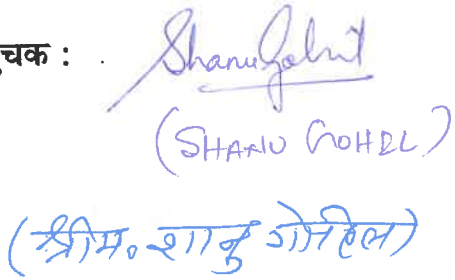 चक : Shanu Gohil
(SHANU GOHEL)
(श्रीम. शानु गोहिल)